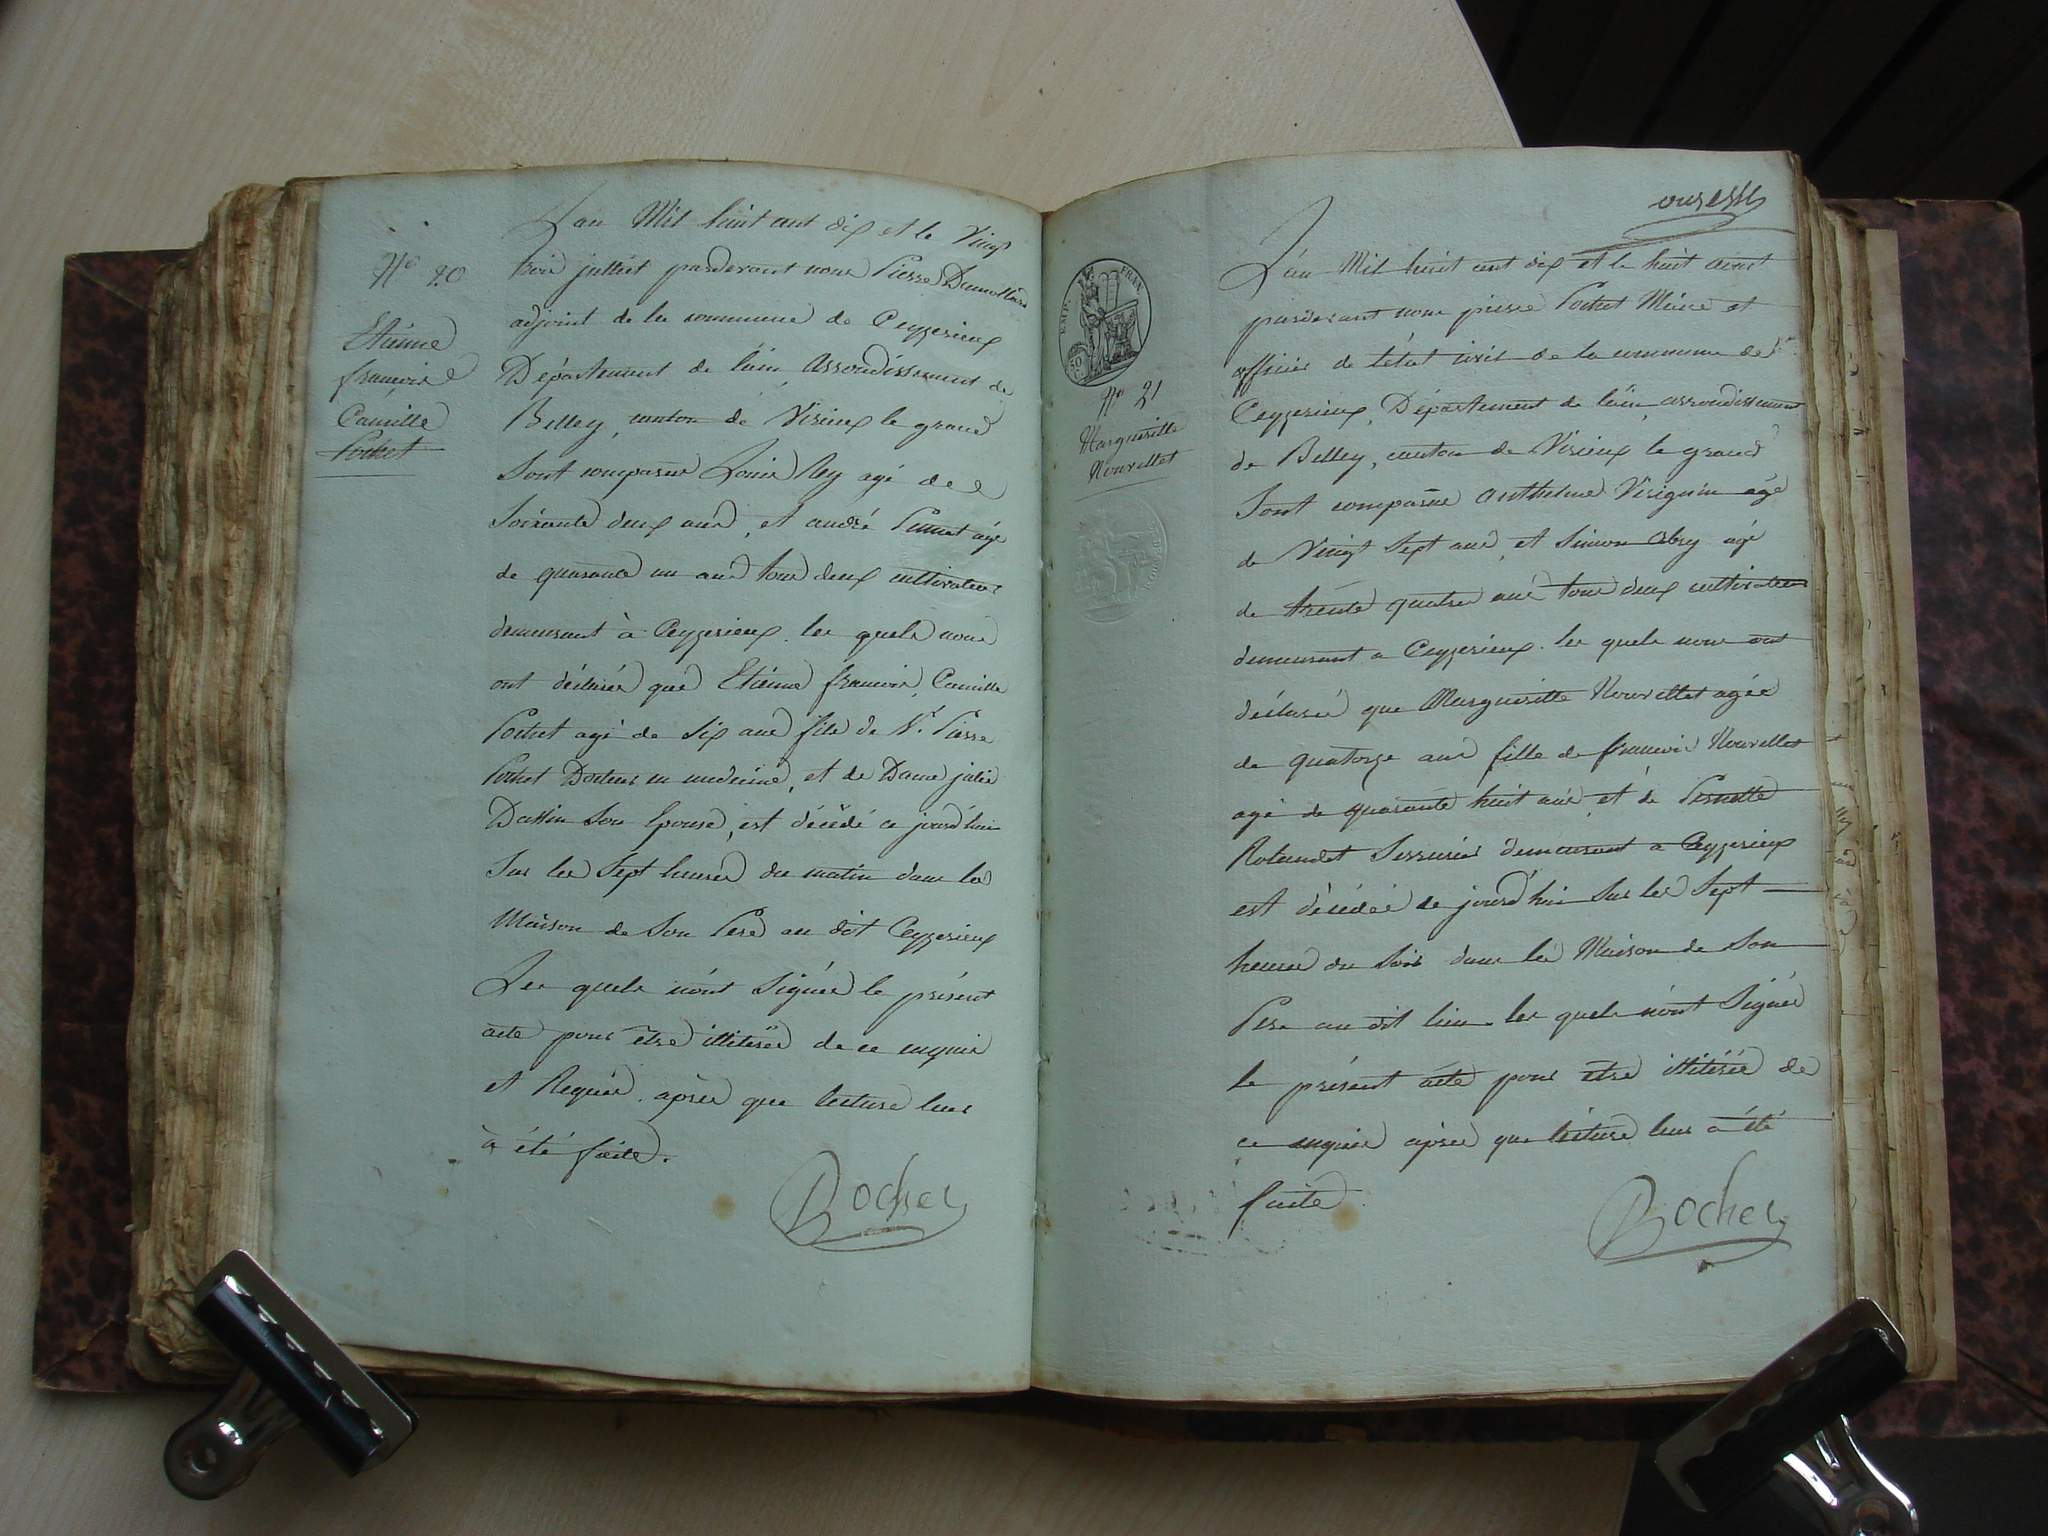 N° 20
Etiénne
francois
Camille
Pochet
L'an Mil huit cent dix et le Vingt
trois juillet pardevant nous Pierre Dumollard
adjoint de la commune de Ceyzerieux
Département de l'ain, Arrondissement de
Belley, canton de Virieux le grand
Sont comparus Louis Rey agé de
Soixante deux ans, et andré agé
de quarante un ans tous deux cultivateurs
demeurant à Ceyzerieux. les quels nous
ont déclarés que Etiénne francois, Camille
Pochet agé de Six ans fils de Sr. Pierre
Pochet Docteur en medecine, et de Dame julie
Son Epouse, est décédé ce jourd'hui
Sur les Sept heures du matin dans la
Maison de Son Pere au dit Ceyzerieux
Les quels n'ont Signés le présent
acte pour être illitérés de ce enquis
et Requis. après que lecture leur
à été faite.
Pochet
onze
EMP. FRAN.
50 C.
N° 21
Margueritte
Nouvellet
L'an Mil huit cent dix et le huit aoust
pardevant nous pierre Pochet Maire et
officier de l'état civil de la commune de
Ceyzerieux, Département de l'ain, arrondissement
de Belley, canton de Virieux le grand
Sont comparus anthelme Viriguin agé
de Vingt Sept ans, et Simon Abry agé
de trente quatre ans tous deux cultivateurs
demeurant a Ceyzerieux. les quels nous ont
déclaré que Marguerite Nouvellet agée
de quatorze ans fille de francois Nouvellet
agé de quarante huit ans, et de Pernette
Rolandet Serrurier demeurant a Ceyzerieux
est décédée ce jourd'hui Sur les Sept
heures du Soir dans la Maison de Son
Pere au dit lieu. les quels n'ont Signés
le présent acte pour être illitérés de
ce enquis après que lecture leur a été
faite
Pochet